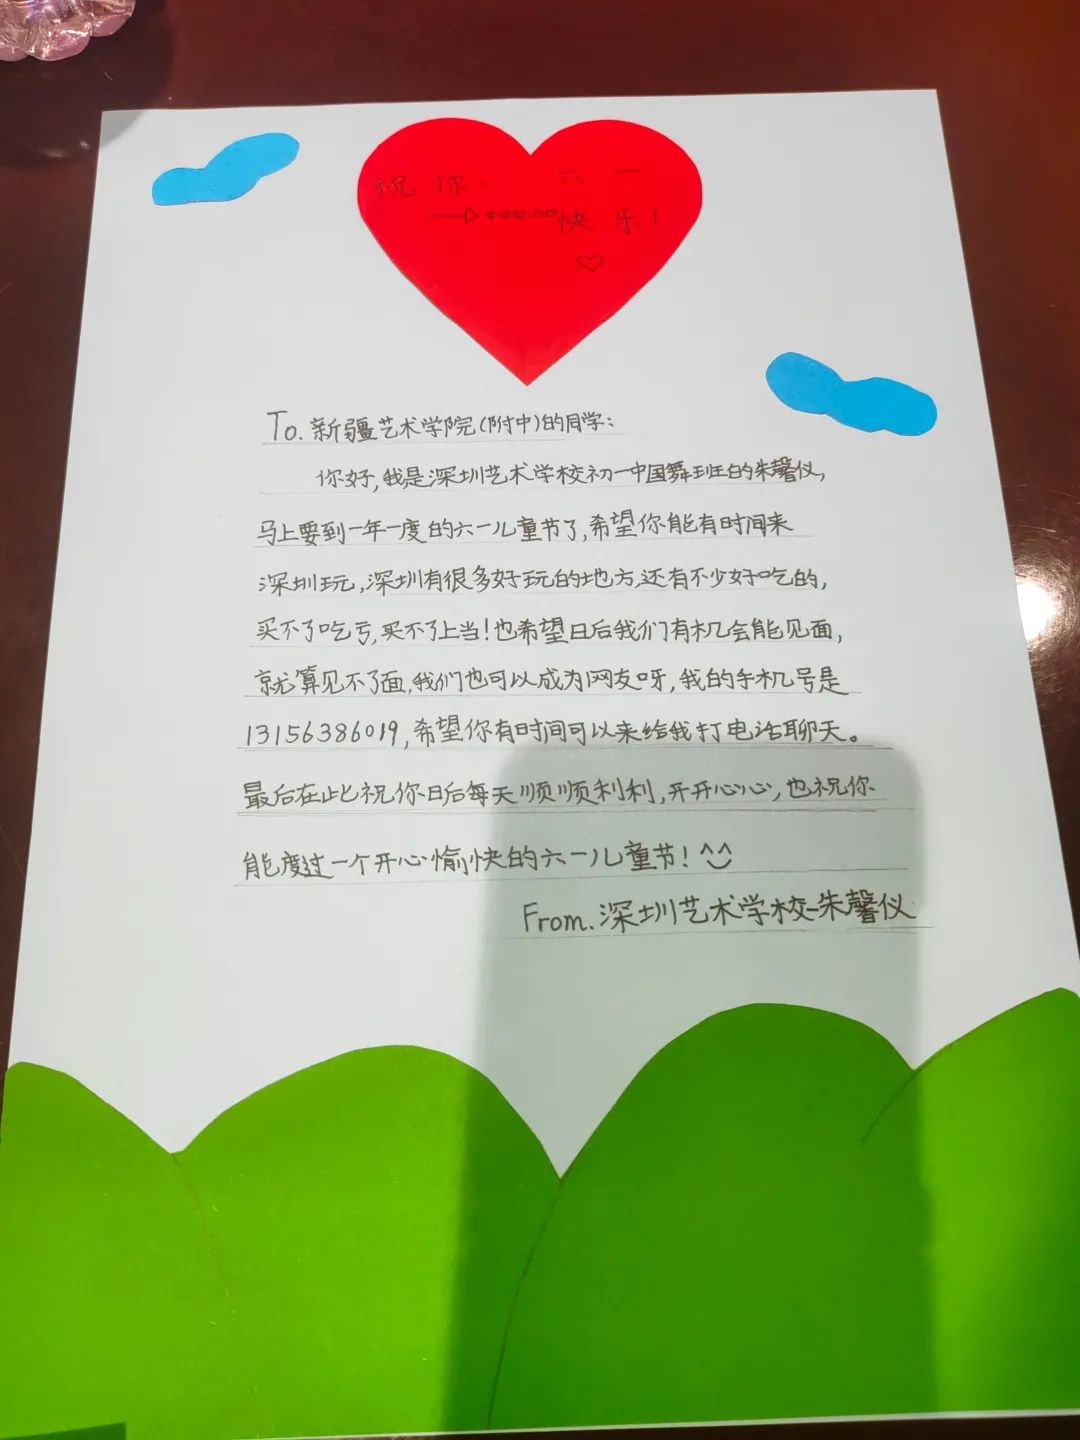 祝你: 六一
快乐!
To. 新疆艺术学院(附中)的同学:
你好,我是深圳艺术学校初一中国舞班的朱馨仪,
马上要到一年一度的六一儿童节了,希望你能有时间来
深圳玩,深圳有很多好玩的地方,还有不少好吃的,
买不了吃亏,买不了上当!也希望日后我们有机会能见面,
就算见不了面,我们也可以成为网友呀,我的手机号是
13156386019,希望你有时间可以来给我打电话聊天。
最后在此祝你日后每天顺顺利利,开开心心,也祝你
能度过一个开心愉快的六一儿童节!^^
From. 深圳艺术学校-朱馨仪